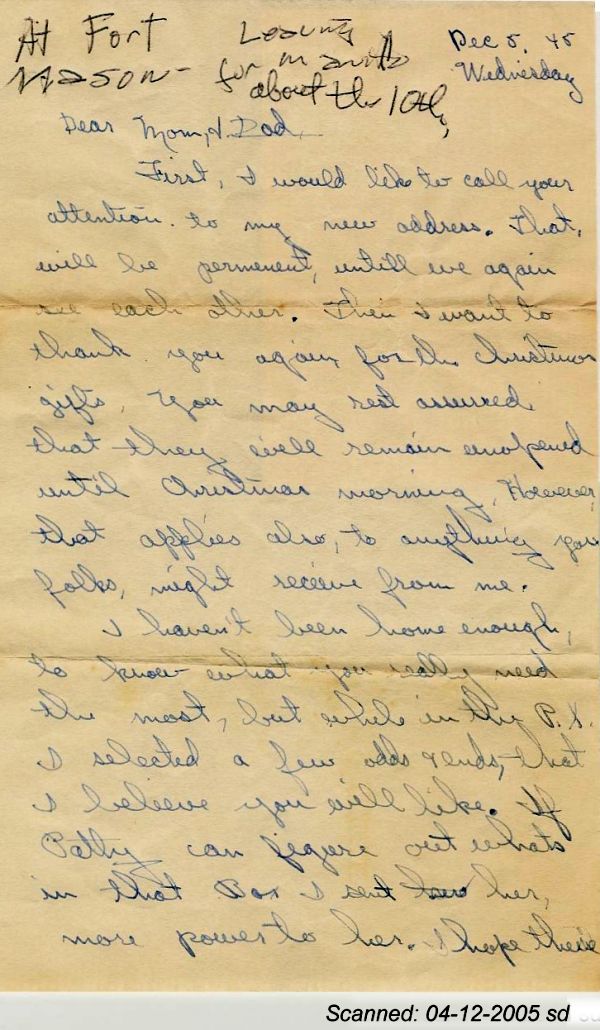 At Fort Leaving
Mason - for manila
about the 10th,
Dec 5, 45
Wednesday
Dear Mom, & Dad,
First, I would like to call your
attention to my new address. That,
will be permenent, untill we again
see each other. Then I want to
thank you again, for the Christmas
gifts. You may rest assured
that they will remain unopened
until Christmas morning. However,
that applies also, to anything you
folks, might receive from me.
I haven't been home enough,
to know what you really need
the most, but while in the P.X.
I selected a few odds & ends, that
I believe you will like. If
Patty can figure out whats
in that Box I sent her,
more power to her. I hope there
Scanned: 04-12-2005 sd